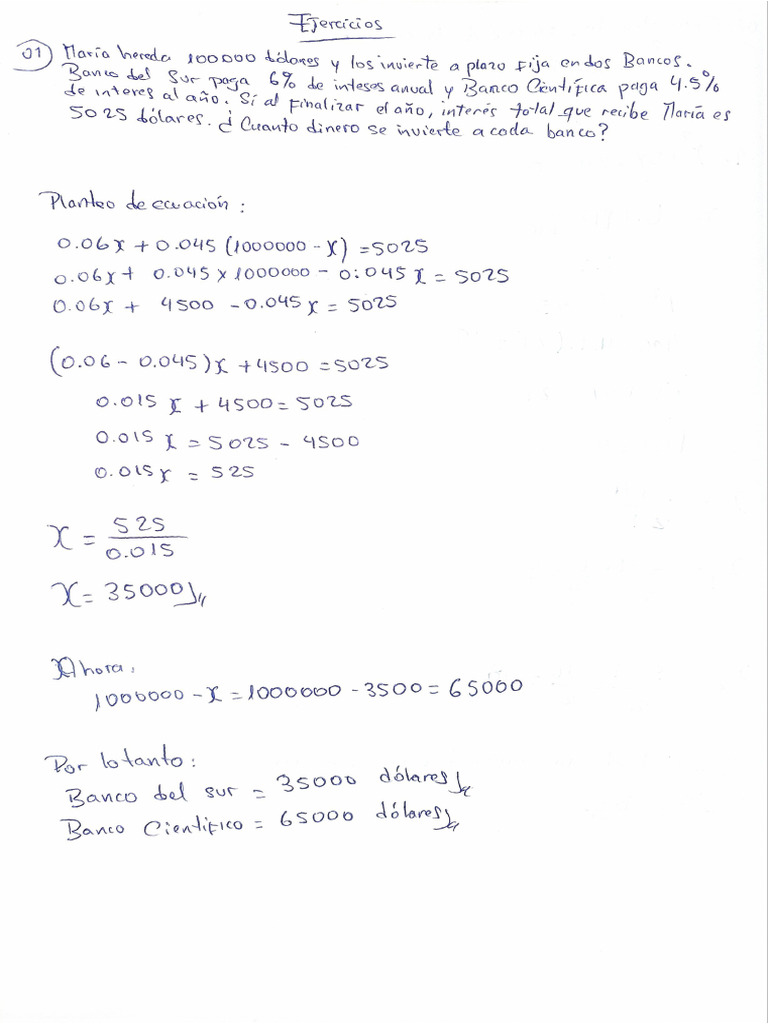 Ejercicios
01) María hereda 100000 dólares y los invierte a plazo fija en dos Bancos.
Banco del Sur paga 6% de inteses anual y Banco Científica paga 4.5%
de interes al año. Sí al finalizar el año, interés total que recibe María es
5025 dólares. ¿Cuanto dinero se invierte a coda banco?
Planteo de ecuación:
0.06x + 0.045 (1000000 - x) = 5025
0.06x + 0.045 x 1000000 - 0.045 x = 5025
0.06x + 4500 - 0.045x = 5025
(0.06 - 0.045)x + 4500 = 5025
0.015 x + 4500 = 5025
0.015 x = 5025 - 4500
0.015x = 525
x = 525/0.015
x = 35000
Ahora:
1000000 - x = 1000000 - 3500 = 65000
Por lo tanto:
Banco del sur = 35000 dólares
Banco Científico = 65000 dólares